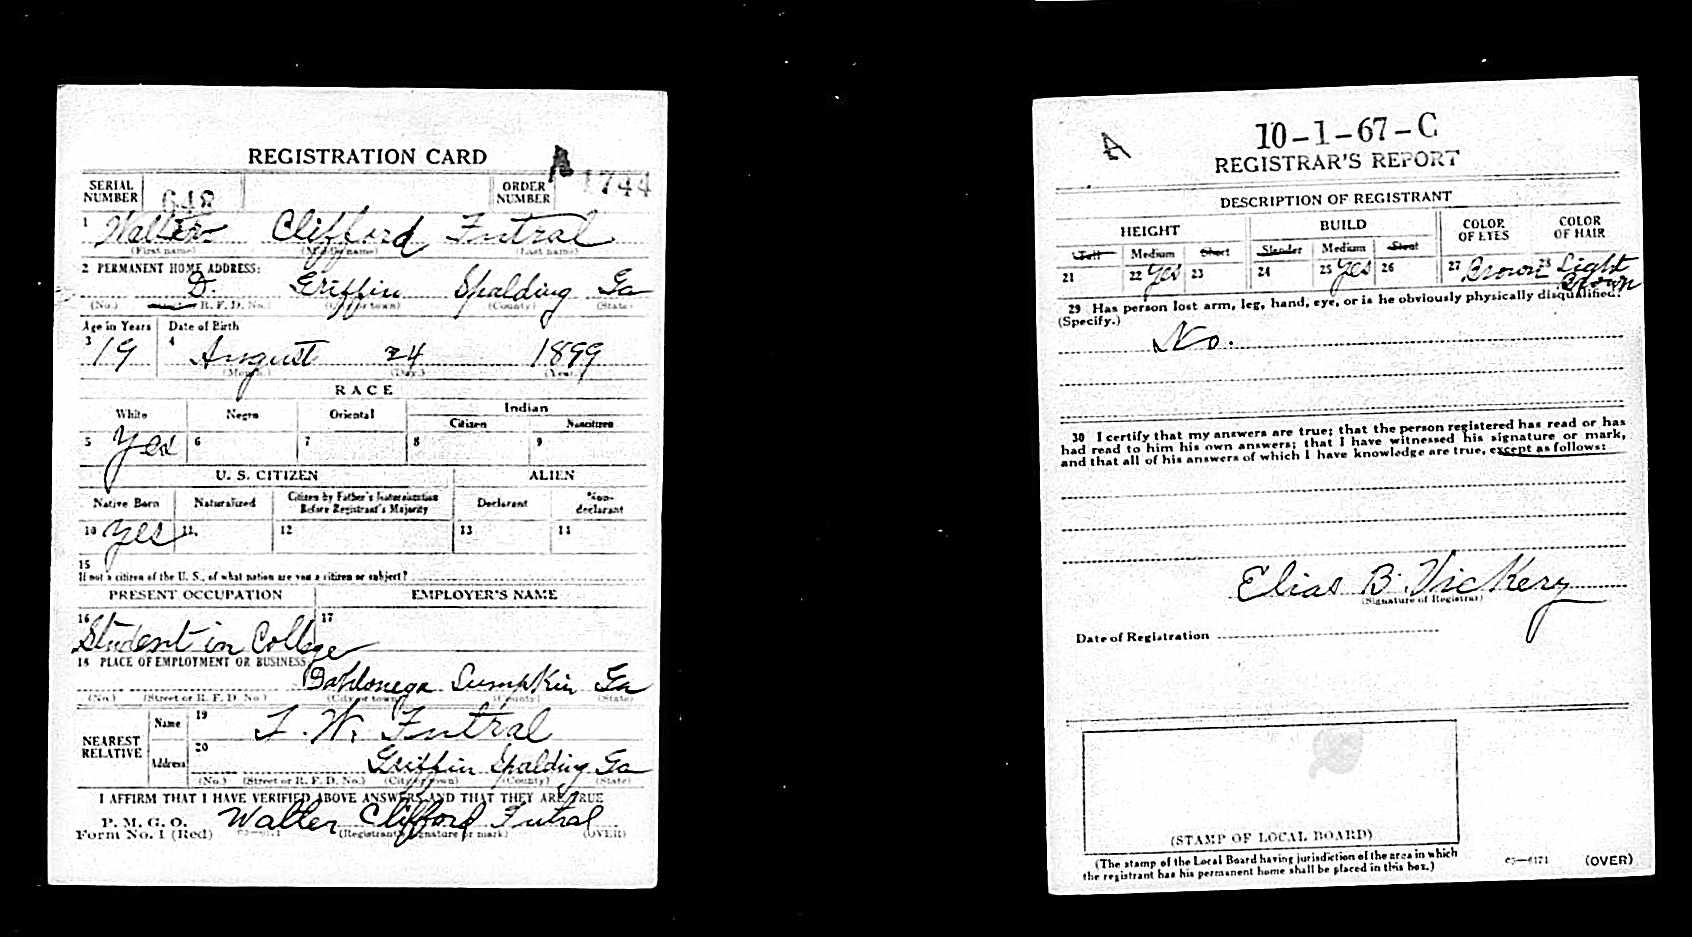 REGISTRATION CARD
SERIAL NUMBER 648 ORDER NUMBER A 1744
1 Walter Clifford Futral
(First name) (Middle name) (Last name)
2 PERMANENT HOME ADDRESS:
D. Griffin Spalding Ga
(No.) R. F. D. No.) (City or town) (County) (State)
Age in Years Date of Birth
3 19 4 August 24 1899
(Month.) (Day.) (Year.)
RACE
White Negro Oriental Indian
Citizen Noncitizen
5 Yes 6 7 8 9
U. S. CITIZEN ALIEN
Native Born Naturalized Citizen by Father's Naturalization Before Registrant's Majority Declarant Non-declarant
10 Yes 11 12 13 14
15
If not a citizen of the U. S., of what nation are you a citizen or subject?
PRESENT OCCUPATION EMPLOYER'S NAME
16 Student in College 17
18 PLACE OF EMPLOYMENT OR BUSINESS:
Dahlonega Lumpkin Ga
(No.) (Street or R. F. D. No.) (City or town) (County) (State)
NEAREST RELATIVE Name 19 T. W. Futral
Address 20 Griffin Spalding Ga
(No.) (Street or R. F. D. No.) (City or town) (County) (State)
I AFFIRM THAT I HAVE VERIFIED ABOVE ANSWERS AND THAT THEY ARE TRUE
P. M. G. O.
Form No. 1 (Red) Walter Clifford Futral
(Registrant's signature or mark) (OVER)
A 10-1-67-C
REGISTRAR'S REPORT
DESCRIPTION OF REGISTRANT
HEIGHT BUILD COLOR OF EYES COLOR OF HAIR
Tall Medium Short Slender Medium Stout
21 22 Yes 23 24 25 Yes 26 27 Brown 28 Light Brown
29 Has person lost arm, leg, hand, eye, or is he obviously physically disqualified?
(Specify.)
No.
30 I certify that my answers are true; that the person registered has read or has
had read to him his own answers; that I have witnessed his signature or mark,
and that all of his answers of which I have knowledge are true, except as follows:
Elias B. Vickery
(Signature of Registrar)
Date of Registration
(STAMP OF LOCAL BOARD)
(The stamp of the Local Board having jurisdiction of the area in which
the registrant has his permanent home shall be placed in this box.)
03—6171 (OVER)